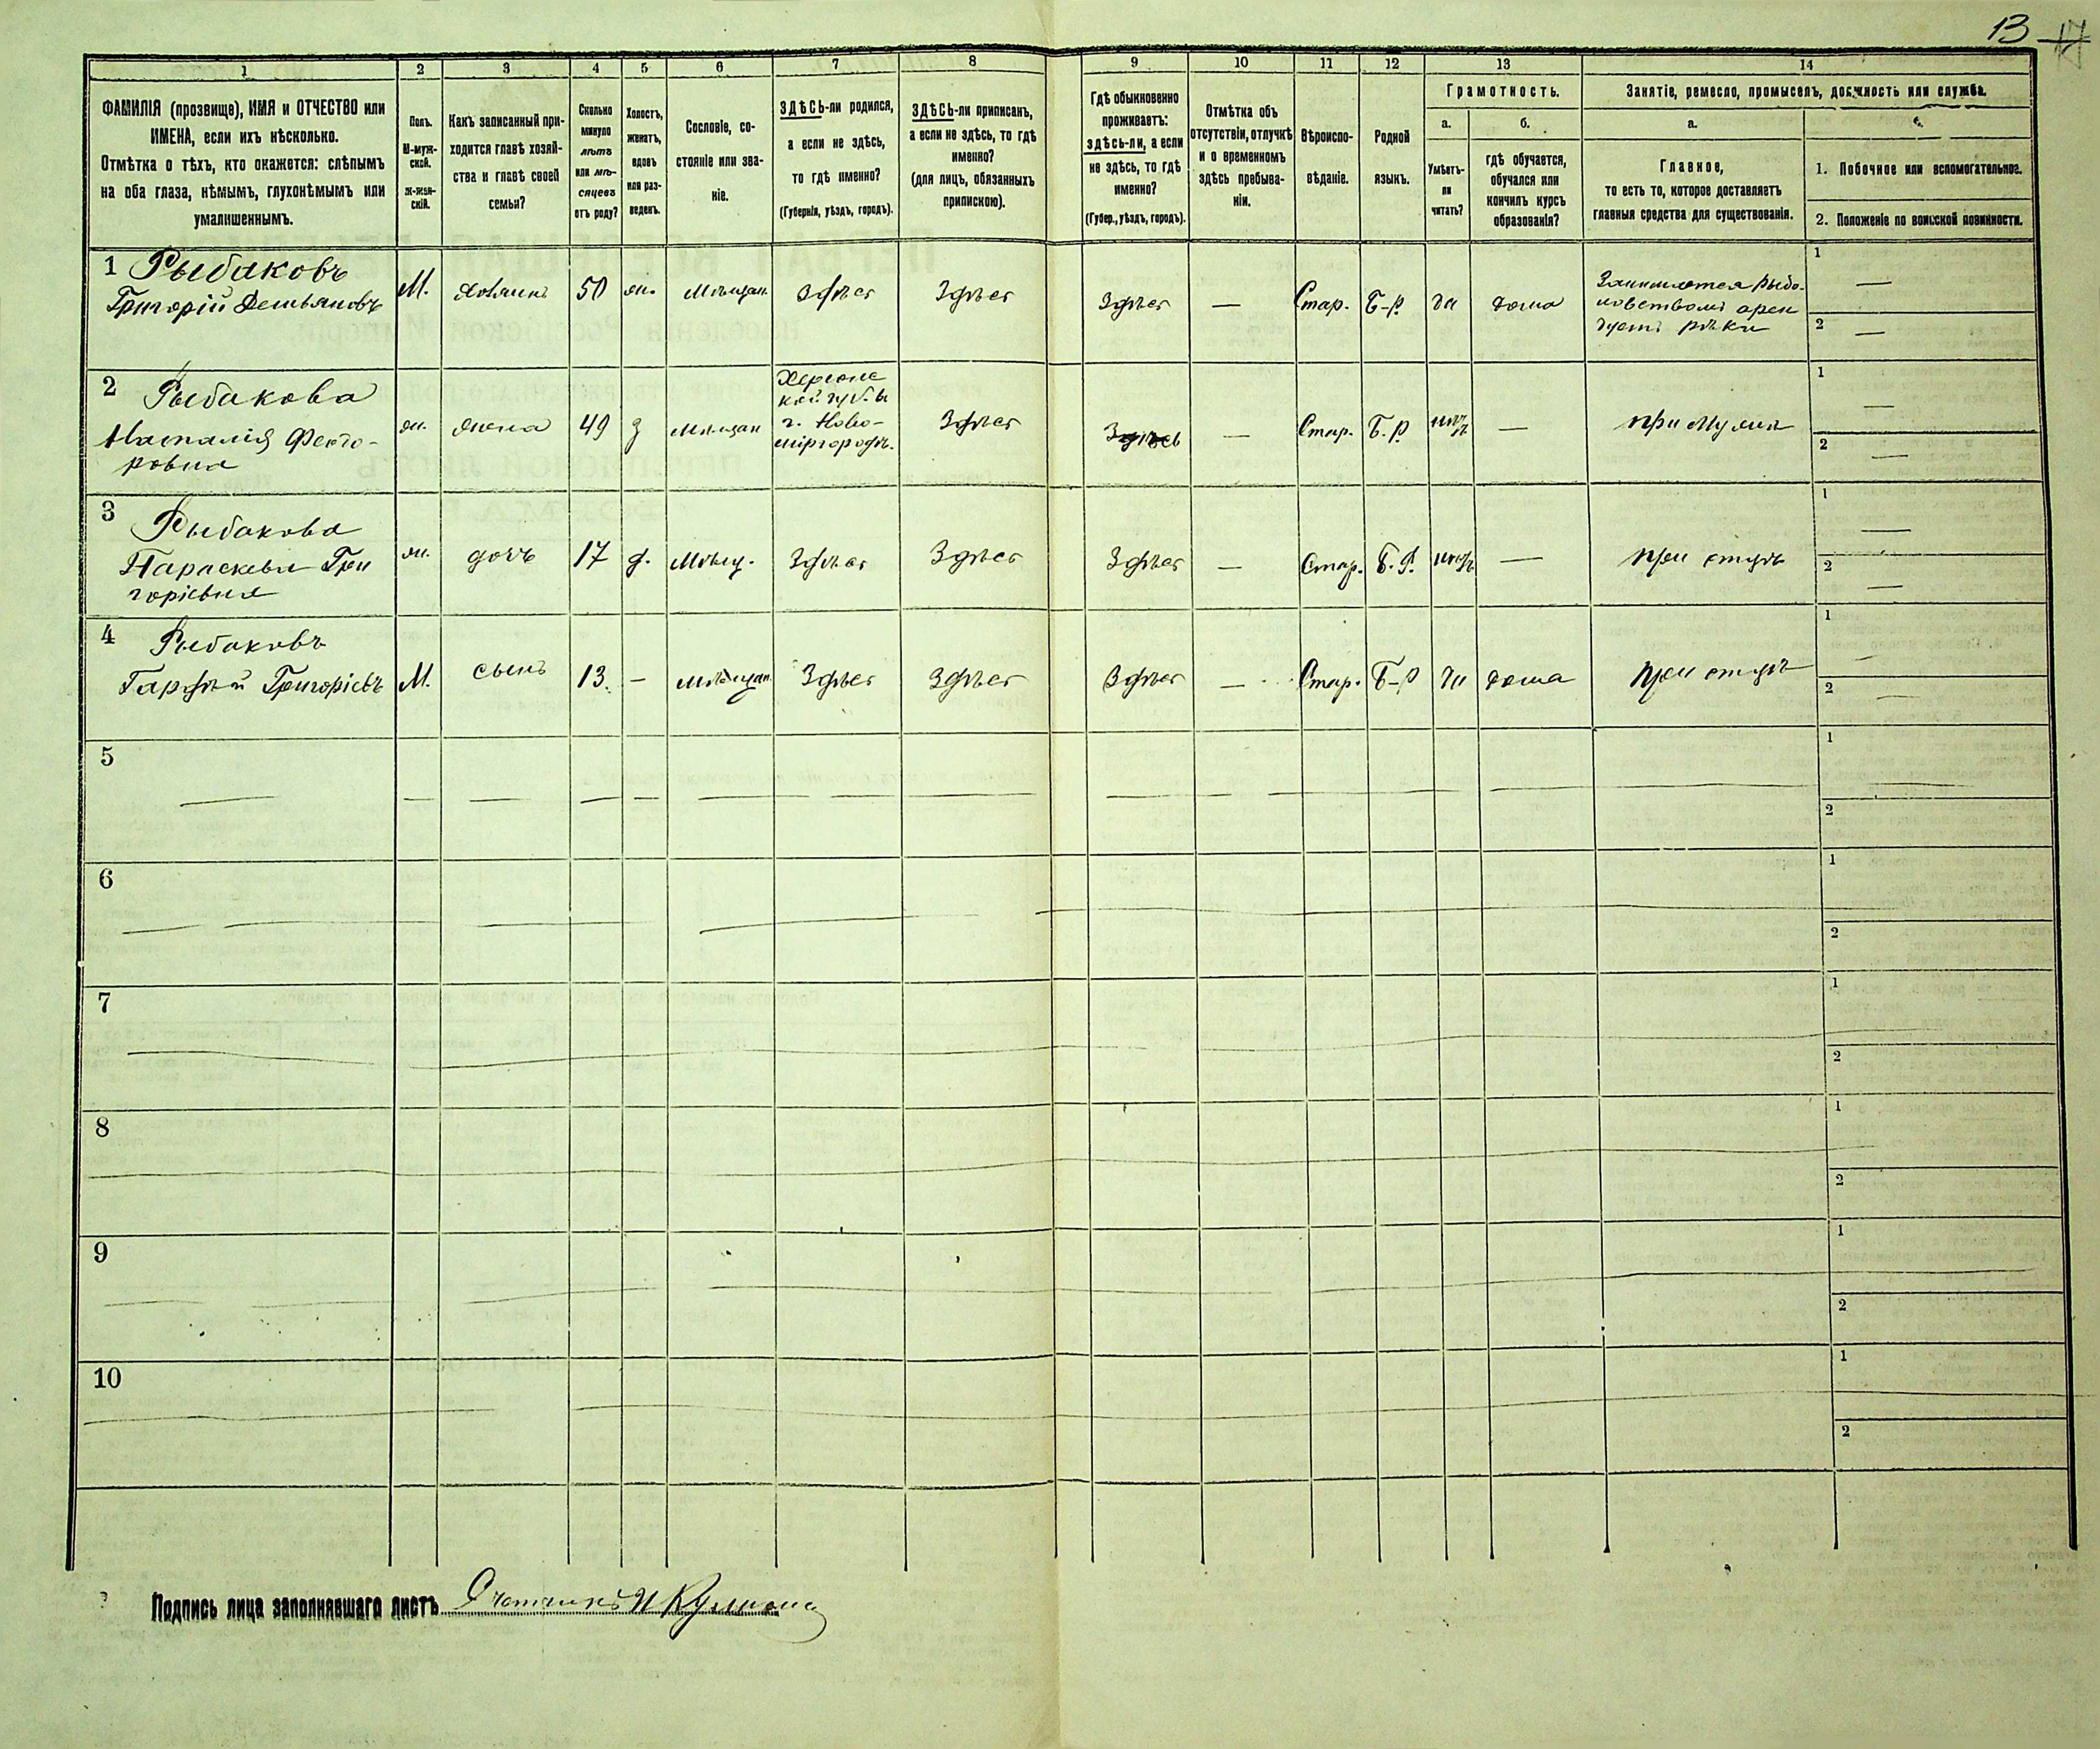 13 17
1 2 3 4 5 6 7 8 9 10 11 12 13 14
ФАМИЛІЯ (прозвище), ИМЯ и ОТЧЕСТВО или
ИМЕНА, если ихъ нѣсколько.
Отмѣтка о тѣхъ, кто окажется: слѣпымъ
на оба глаза, нѣмымъ, глухонѣмымъ или
умалишеннымъ.
Полъ.
М-муж-
ской.
Ж-жен-
скій.
Какъ записанный при-
ходится главѣ хозяй-
ства и главѣ своей
семьи?
Сколько
минуло
лѣтъ
или мѣ-
сяцевъ
отъ роду?
Холостъ,
женатъ,
вдовъ
или раз-
веденъ.
Сословіе, со-
стояніе или зва-
ніе.
ЗДѢСЬ-ли родился,
а если не здѣсь,
то гдѣ именно?
(Губернія, уѣздъ, городъ).
ЗДѢСЬ-ли приписанъ,
а если не здѣсь, то гдѣ
именно?
(для лицъ, обязанныхъ
припискою).
Гдѣ обыкновенно
проживаетъ:
здѣсь-ли, а если
не здѣсь, то гдѣ
именно?
(Губер., уѣздъ, городъ).
Отмѣтка объ
отсутствіи, отлучкѣ
и о временномъ
здѣсь пребыва-
ніи.
Вѣроиспо-
вѣданіе.
Родной
языкъ.
Грамотность.
а.
Умѣетъ-
ли
читать?
б.
гдѣ обучается,
обучался или
кончилъ курсъ
образованія?
Занятіе, ремесло, промыселъ, должность или служба.
а.
Главное,
то есть то, которое доставляетъ
главныя средства для существованія.
б.
1. Побочное или вспомогательное.
2. Положеніе по воинской повинности.
1 Рыбаковъ
Григорій Демьяновъ
М. хозяинъ 50 ж. мѣщан. Здѣсь Здѣсь Здѣсь — Стар. Б-Р да дома
Занимается рыбо-
ловствомъ арен
дуетъ рѣки
1 —
2 —
2 Рыбакова
Наталія Федо-
ровна
ж. жена 49 з мѣщан
Херсонс
кой губ. в
г. Ново-
миргородъ.
Здѣсь Здѣсь — Стар. Б.Р нѣтъ — при мужѣ
1 —
2 —
3 Рыбакова
Параскева Гри
горіевна
ж. дочь 17 д. мѣщ. Здѣсь Здѣсь Здѣсь — Стар. Б.Р. нѣтъ — при отцѣ
1 —
2 —
4 Рыбаковъ
Гордѣй Григоріевъ
М. сынъ 13. — мѣщан. Здѣсь Здѣсь Здѣсь — Стар. Б-Р да дома при отцѣ
1 —
2 —
5
1
2
6
1
2
7
1
2
8
1
2
9
1
2
10
1
2
Подпись лица заполнявшаго листъ Счетчикъ И